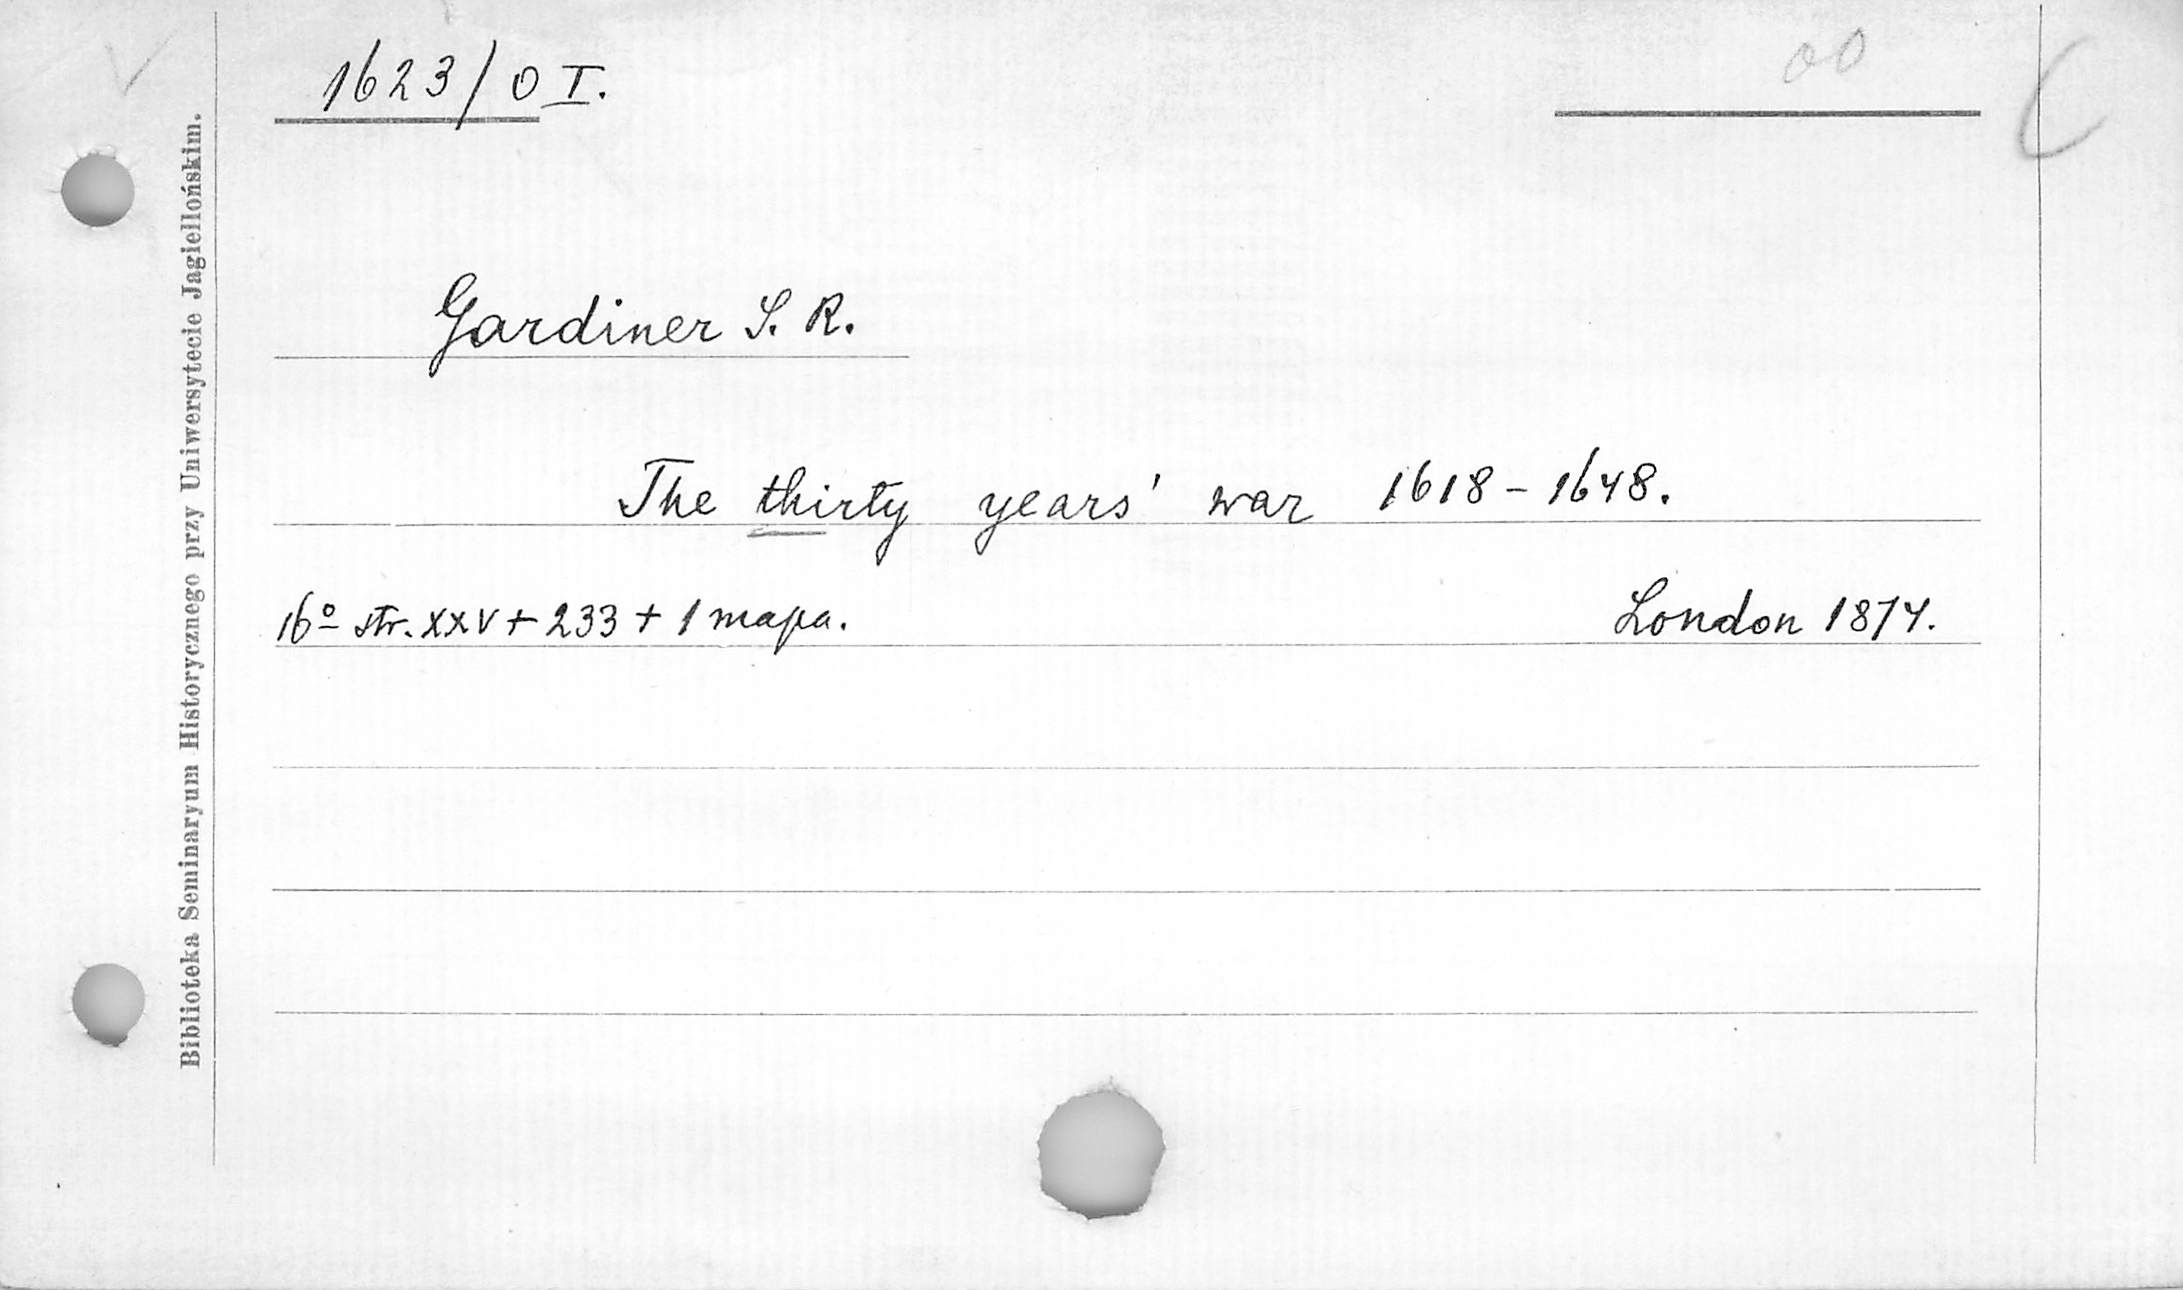 1623/O I.
00
C
Gardiner S. R.
The thirty years' war 1618-1648.
16° str. XXV + 233 + 1 mapa.
London 1874.
Biblioteka Seminaryum Historycznego przy Uniwersytecie Jagiellońskim.